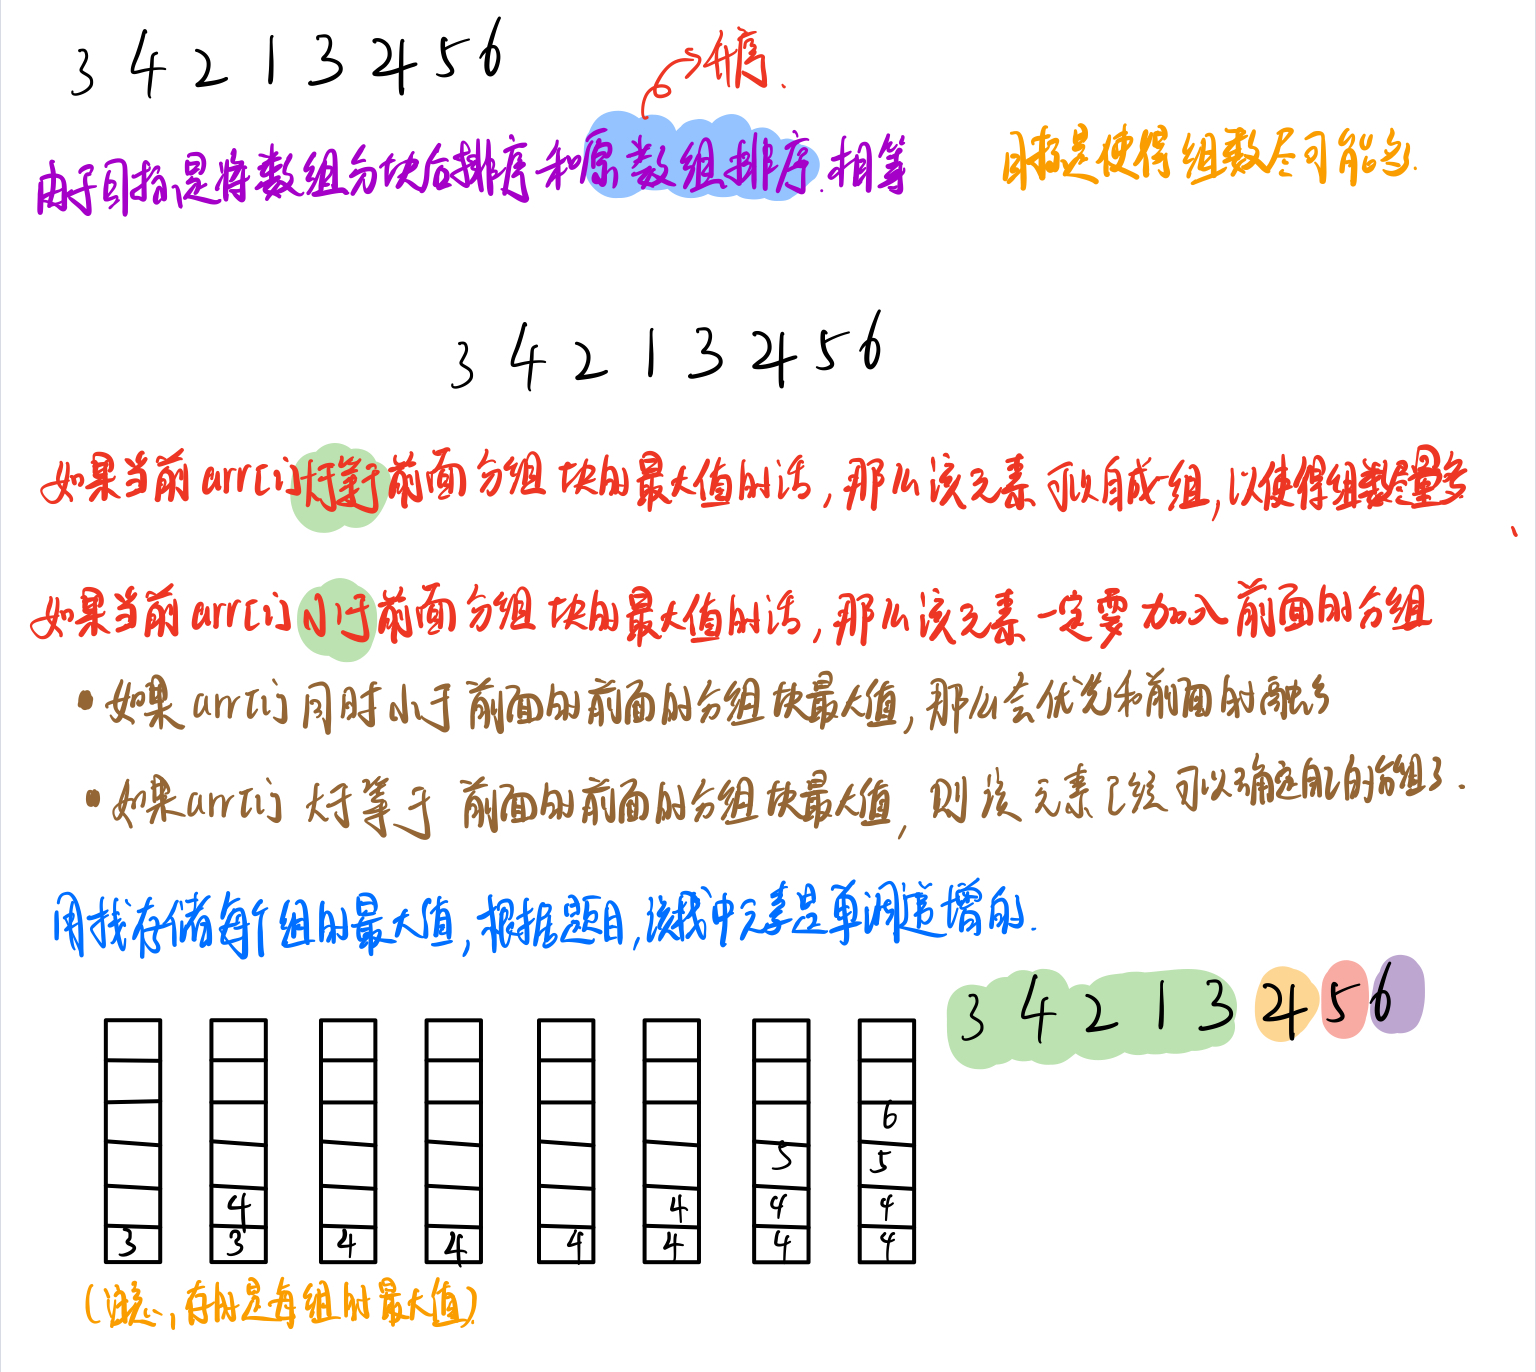 3 4 2 1 3 4 5 6
升序.
由于目标是将数组分块后排序和原数组排序相等
目标是使得组数尽可能多.
3 4 2 1 3 4 5 6
如果当前arr[i]大于等于前面分组块的最大值的话,那么该元素可以自成一组,以使得组数尽量多
如果当前arr[i]小于前面分组块的最大值的话,那么该元素一定要加入前面的分组
• 如果arr[i]同时小于前面的前面的分组块最大值,那么会优先和前面的融合
• 如果arr[i]大于等于前面的前面的分组块最大值,则该元素已经可以确定自己的分组了.
用栈存储每个组的最大值,根据题目,该栈中元素是单调递增的.
3 4 2 1 3 4 5 6
6
5 5
4 4 4 4
3 3 4 4 4 4 4 4
(注意,存的是每组的最大值)